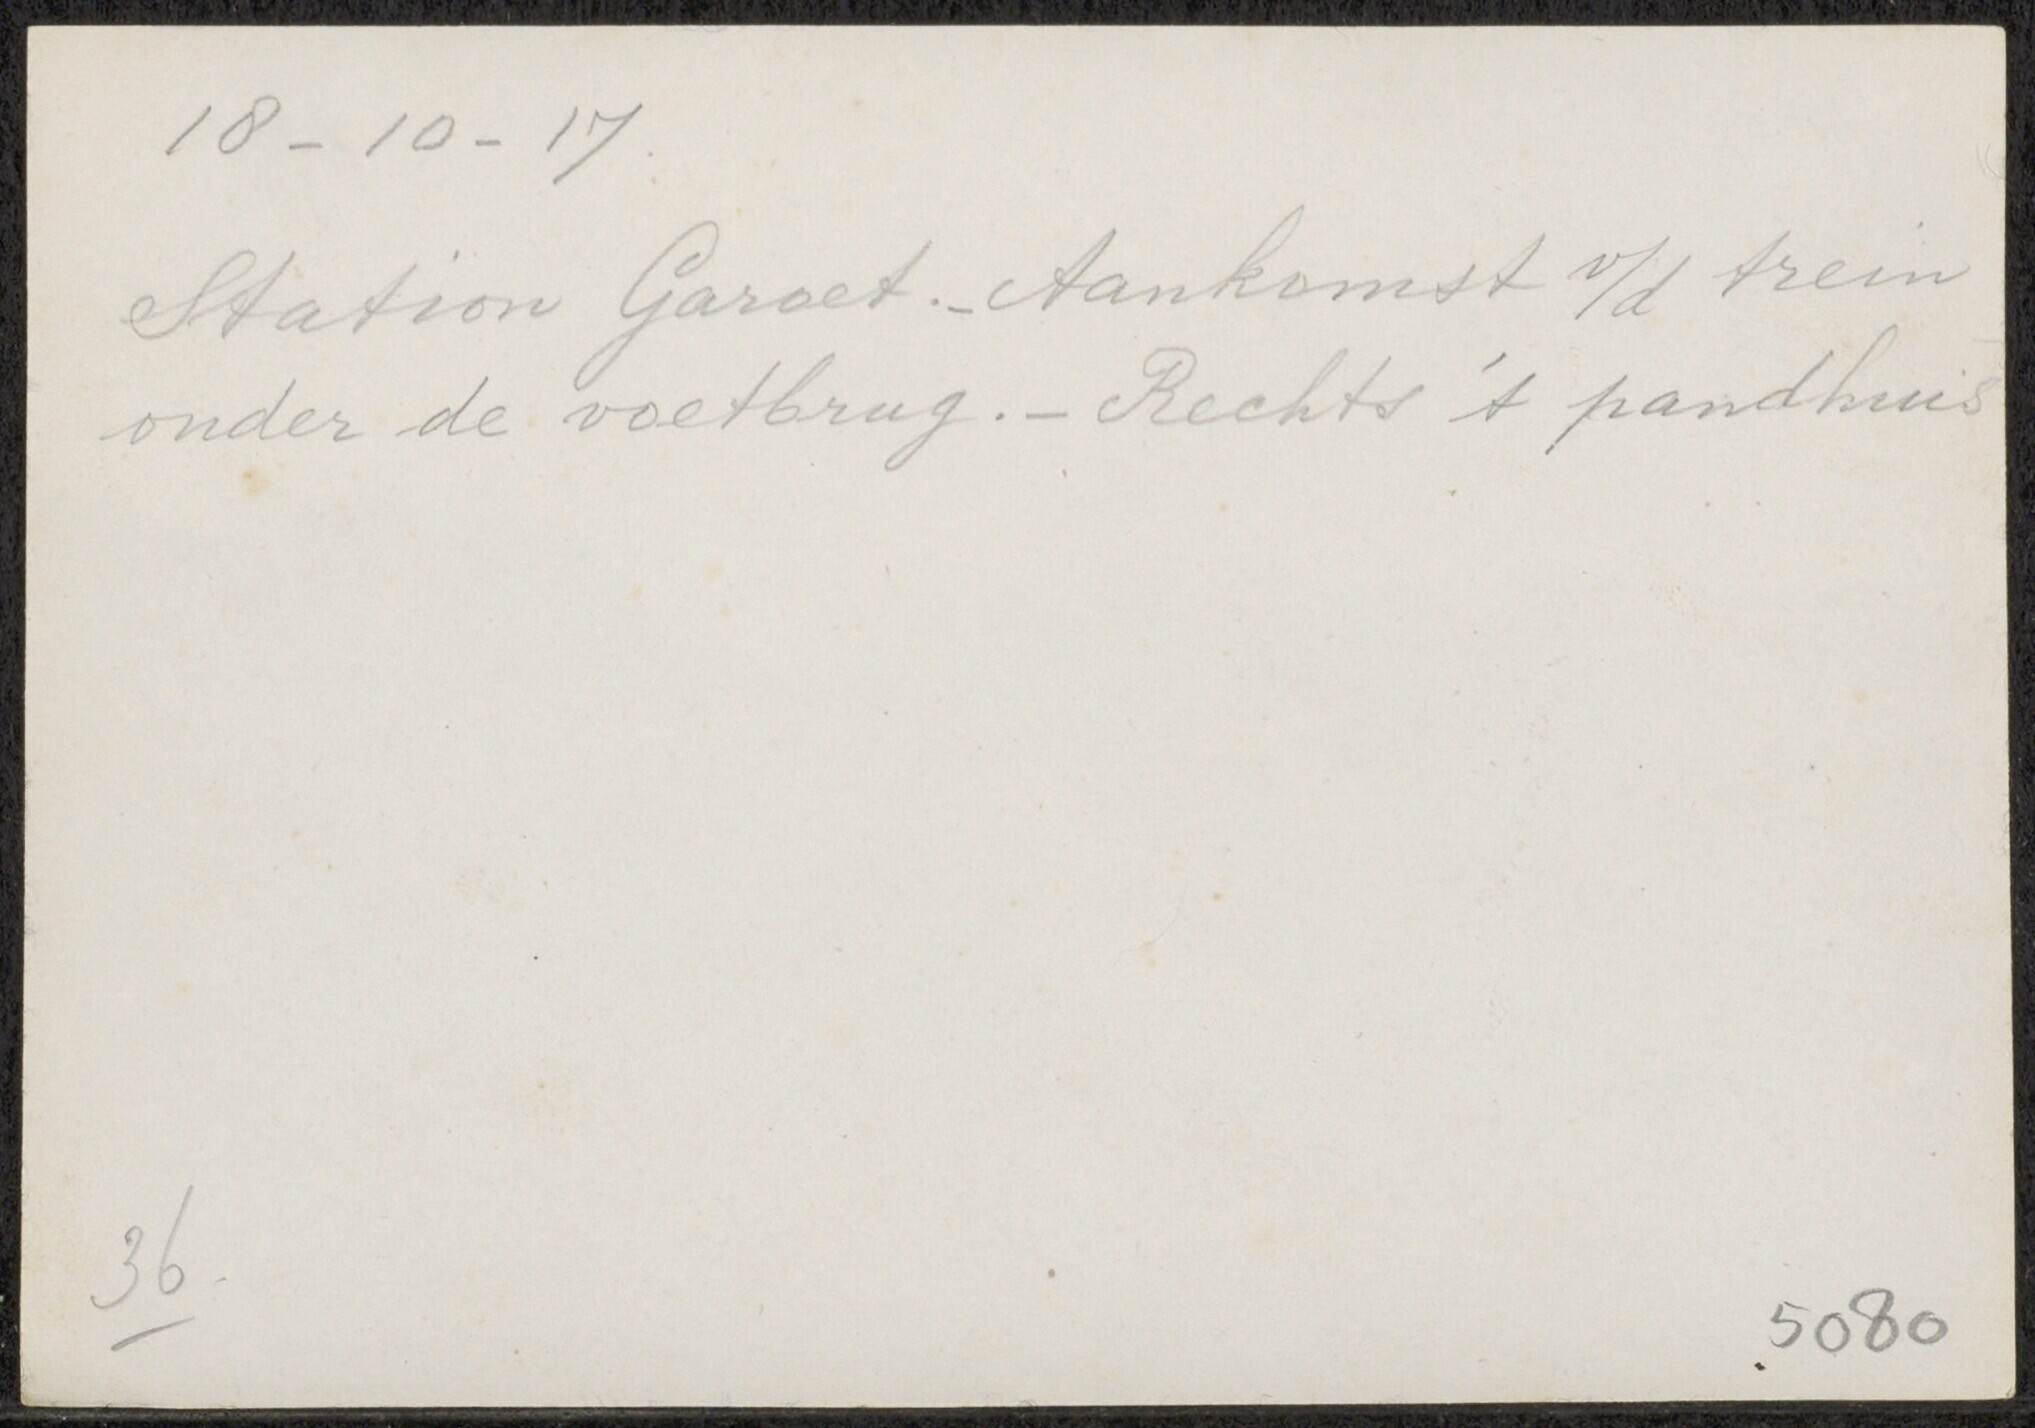 18 - 10 - 17.
Station Garoet. - Aankomst v/d trein
onder de voetbrug. - Rechts 't pandhuis
36
5080